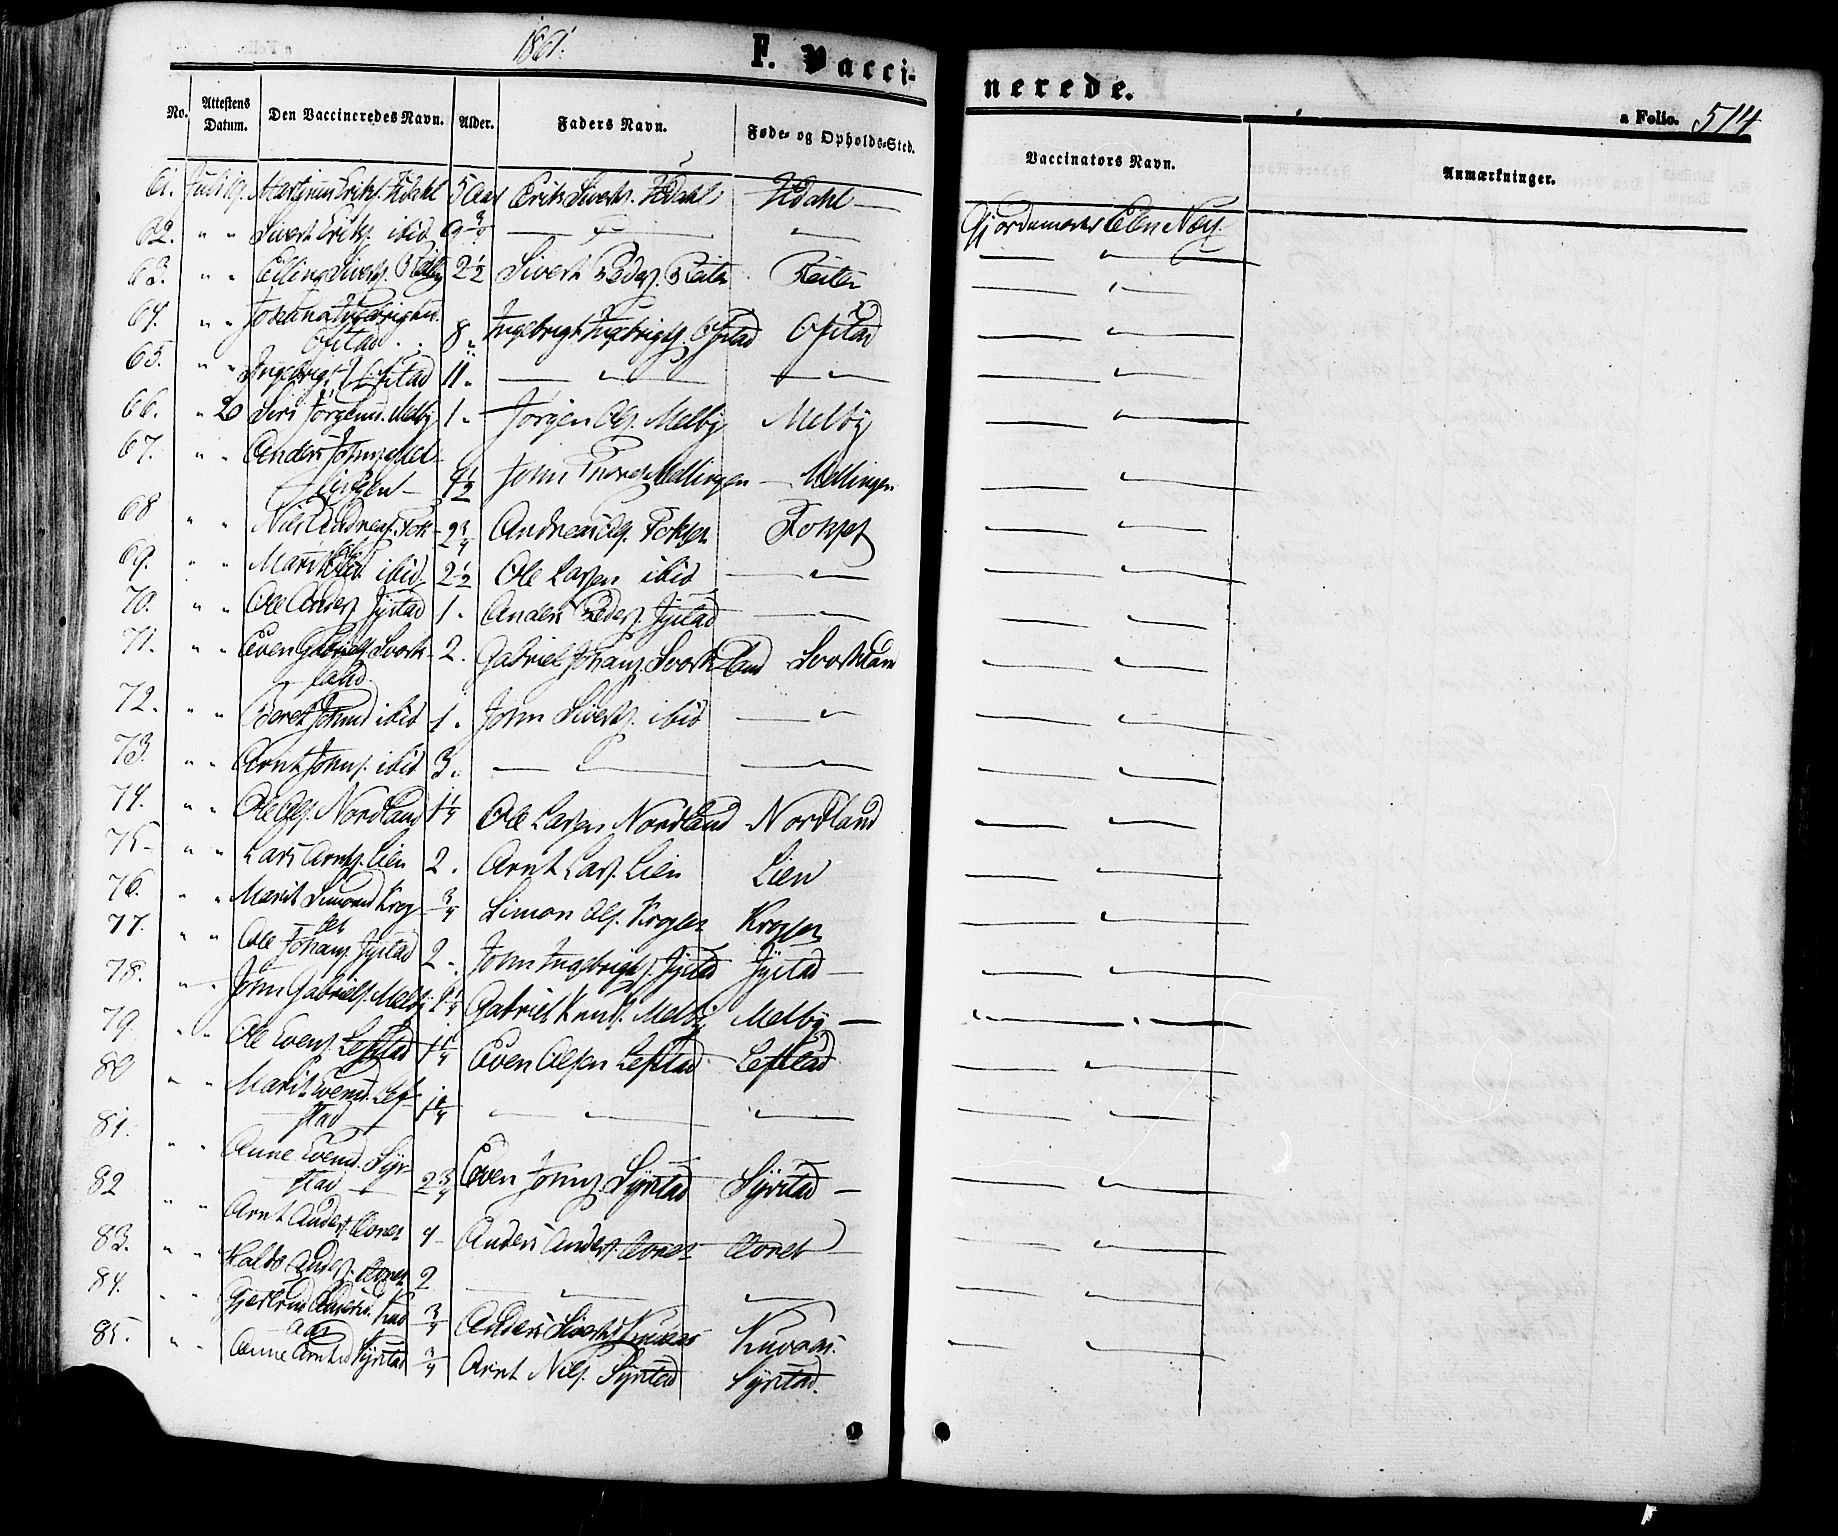 1861.
F. Vacci-
nerede.
a Folio. 514
No. Attestens Datum. Den Vaccineredes Navn. Alder. Faders Navn. Føde- og Opholds-Sted. Vaccinators Navn. Anmærkninger.
61. Juli 19. Eriks. 5 Aar Erik Siverts. Gjordemoder Elen Næss.
62. " " Sivert Eriks. ibid — " — — " — — " —
63. " " Elling Siverts. Reiten 2½ Sivert Peders. Reiten Reiten — " —
64. " " Johanna Ingebrigtsd.
Ofstad 8 " Ingebrigt Ingebrigts. Ofstad Ofstad — " —
65. " " Ingebrigt I. Ofstad 11 " — " — — " — — " —
66. " 20 Siri Jörgensd. Melby 1 " Jörgen Ols. Melby Melby — " —
67. " " Anders Johns. Mel-
lingen John Mellingen Mellingen — " —
68 " " Nils Andreas. Fok- 2¾ Andreas Ols. Fokset Fokset — " —
69. " " Marit Olsd. ibid 2½ Ole Larsen ibid — " — — " —
70. " " Ole Anders. Jystad 1 " Anders Peders. Jystad — " — — " —
71. " " Even Gabriels. Svork- 2 . Gabriel Johans. Svorkland Svorkland — " —
land
72. " " Beret Johnsd ibid 1 . John Siverts. ibid — " — — " —
73. " " Arnt Johns. ibid 3 . — " — — " — — " —
74. " " Ole Ols. Nordland 1¼ Ole Larsen Nordland Nordland — " —
75 " " Lars Arnts. Lien 2 . Arnt Lars. Lien Lien — " —
76. " " Marit Simonsd Krog- ¾ Simon Ols. Krogset Krogset — " —
set
77. " " Ole Johans. Jystad 2 " John Ingebrigts. Jystad Jystad — " —
78. " " John Gabriels. Melby Gabriel Knuds. Melby Melby — " —
79. " " Ole Evens. Lefstad 1¼ Even Olsen Lefstad Lefstad — " —
80 " " Marit Evensd. Lef-
stad 1¼ — " — — " — — " —
81. " " Anne Evensd. Syr-
stad 2¾ Even Johns. Syrstad Syrstad — " —
82 " " Arnt Anders. 4 Anders Anders. — " —
83. " " Anders. 2 — " — — " — — " —
84. " " Gjertrud Andersd. Kuv ¾ Anders Siverts Kuvaas Kuvaas. — " —
aas
85. " " Anne Arntsd Syrstad ¾ Arnt Nils. Syrstad Syrstad.